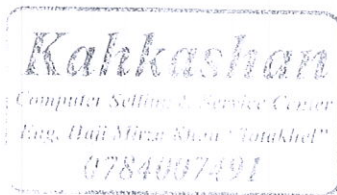 Kahkashan
Computer Setting & Service Center
Eng. Haji Mirza Khan "Totakhel"
0784007491